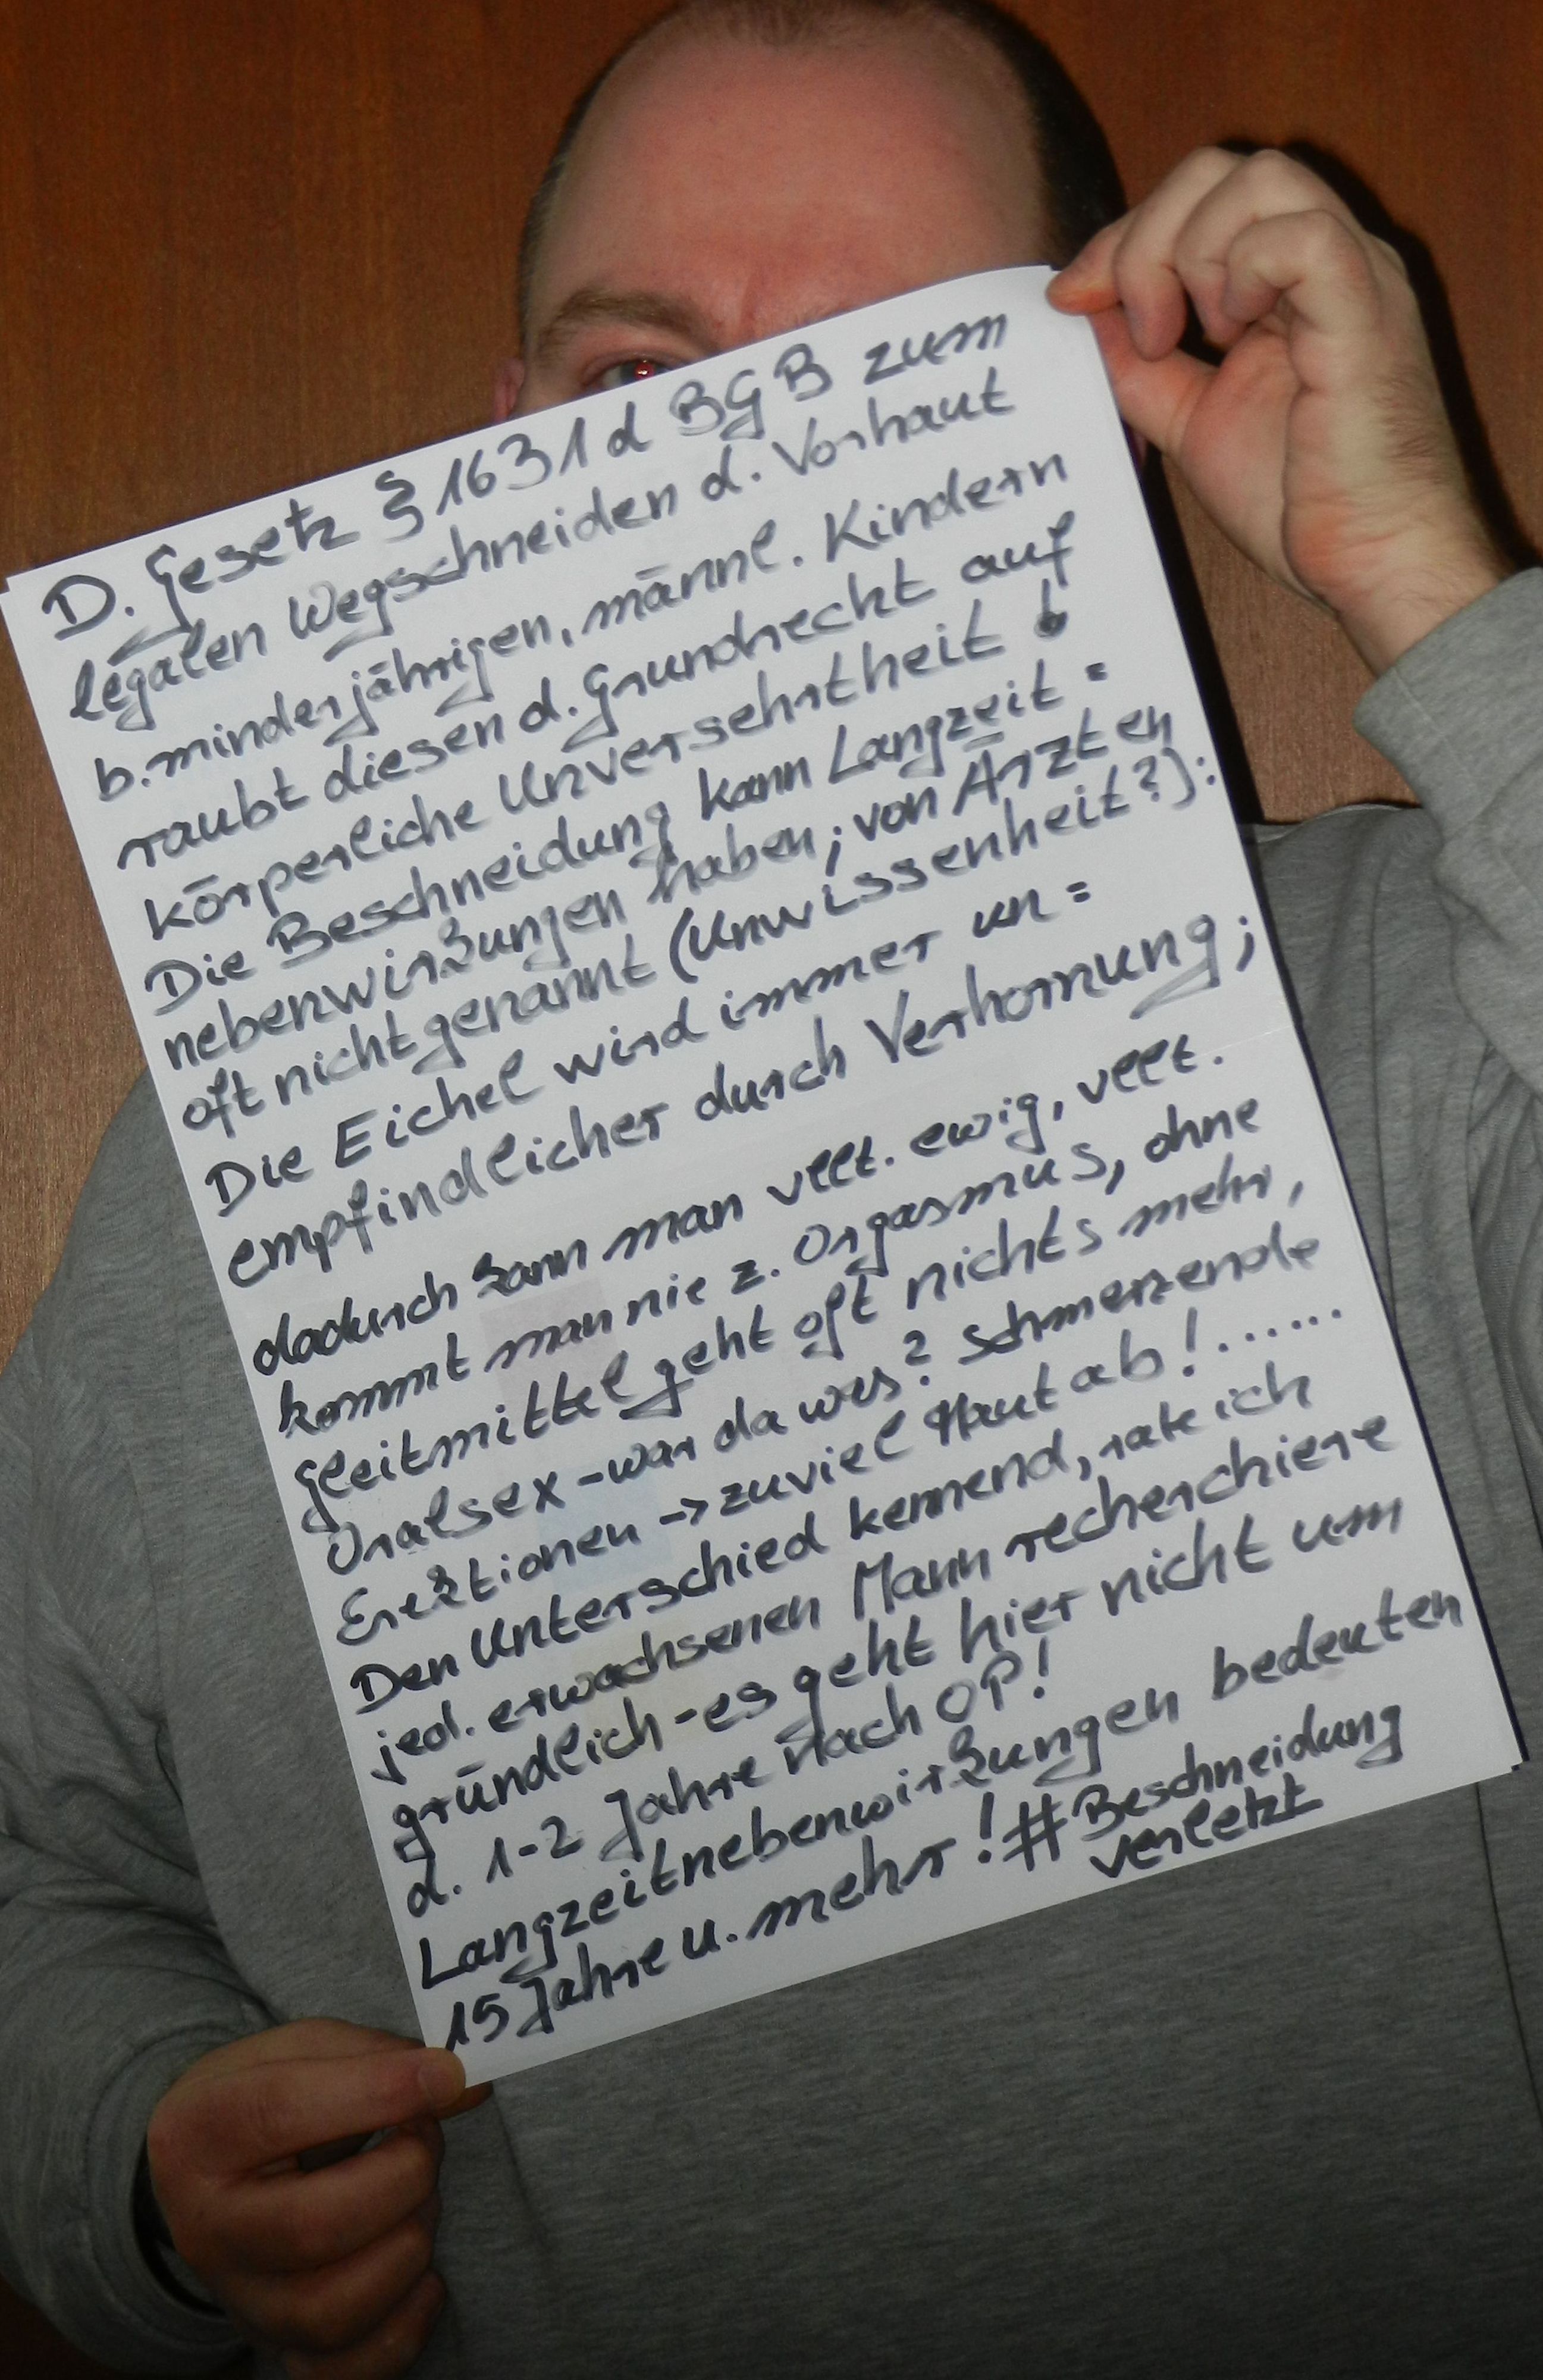 D. Gesetz § 1631 d BGB zum
legalen Wegschneiden d. Vorhaut
b. minderjährigen, männl. Kindern
raubt diesen d. Grundrecht auf
körperliche Unversehrtheit !
Die Beschneidung kann Langzeit =
nebenwirkungen haben; von Ärzten
oft nicht genannt (Unwissenheit?):
Die Eichel wird immer un =
empfindlicher durch Verhornung;
dadurch kann man vllt. ewig, vllt.
kommt man nie z. Orgasmus, ohne
Gleitmittel geht oft nichts mehr,
Oralsex - war da was? Schmerzende
Erektionen -> zuviel Haut ab! ......
Den Unterschied kennend, rate ich
jed. erwachsenen Mann recherchiere
gründlich - es geht hier nicht um
d. 1-2 Jahre nach OP!
Langzeitnebenwirkungen bedeuten
15 Jahre u. mehr! # Beschneidung
verletzt